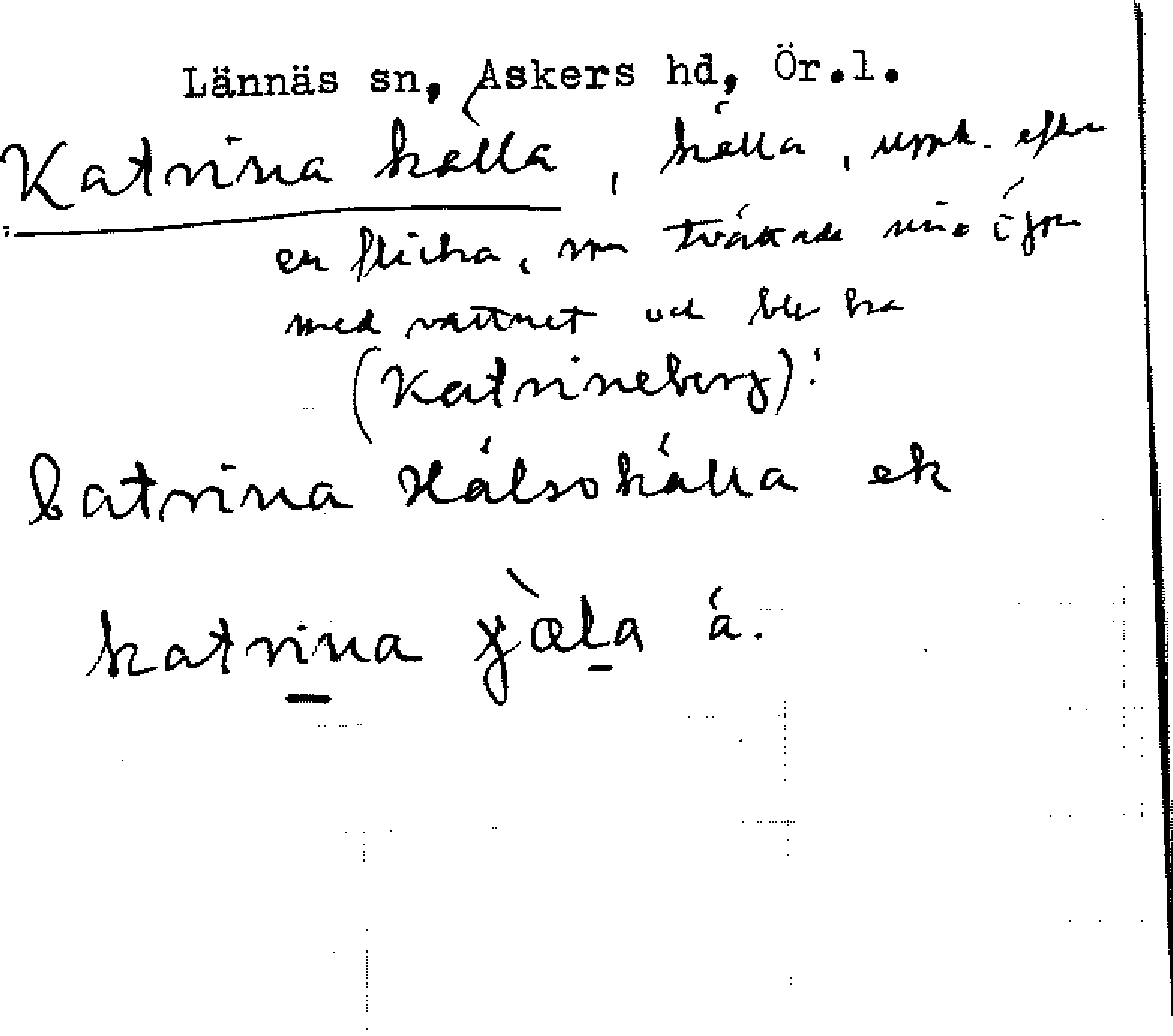 Lännäs sn, Askers hd, Ör.l.
Katrina källa, källa, uppk. efter
en flicka, som tvättade sina ögon
med vattnet och blev bra
(Katrineberg):
Catrina Hälsokälla ek
katrina